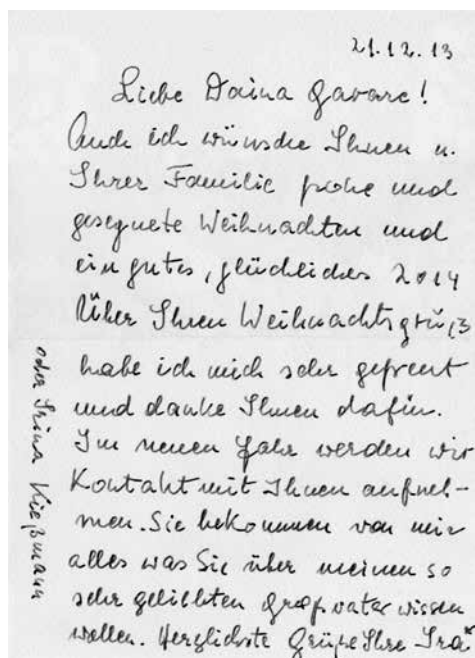 21.12.13
Liebe Daina Gavare!
Auch ich wünsche Ihnen u.
Ihrer Familie frohe und
gesegnete Weihnachten und
ein gutes, glückliches 2014
Über Ihren Weihnachtsgruß
habe ich mich sehr gefreut
und danke Ihnen dafür.
Im neuen Jahr werden wir
Kontakt mit Ihnen aufneh-
men. Sie bekommen von mir
alles was Sie über meinen so
sehr geliebten Großvater wissen
wollen. Herzlichste Grüße Ihre Ira*
oder Irina Kießmann